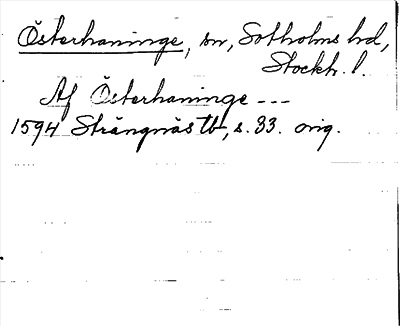 Österhaninge, sn, Sotholms hd,
Stockh. l.
Af Österhaninge ---
1594 Strängnäs tb, s. 33. orig.